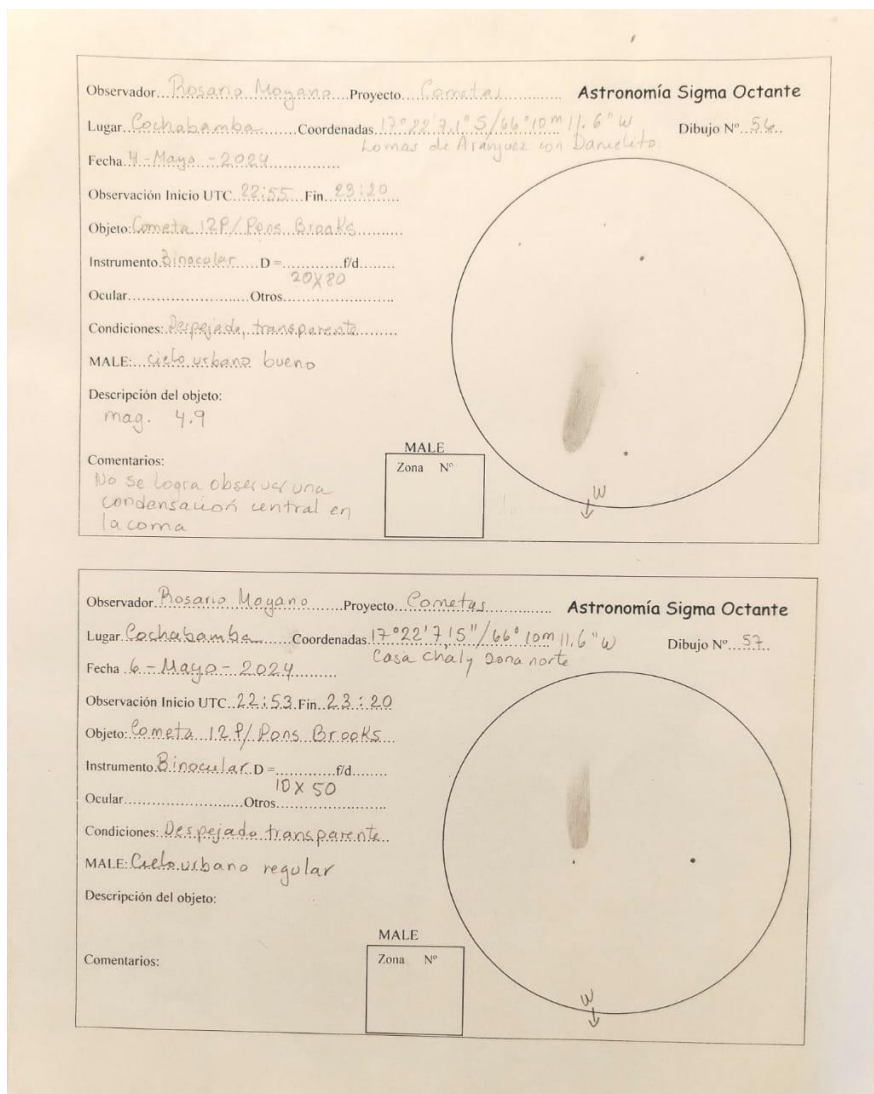 Observador...Rosario Moyano...Proyecto...Cometas............ Astronomía Sigma Octante
Lugar..Cochabamba.......Coordenadas.17°22'7,1"S/66°10m11.6"W Dibujo Nº..56..
Lomas de Aranjuez con Danielito
Fecha.4-Mayo-2024................
Observación Inicio UTC..22:55...Fin..23:20
Objeto:Cometa.12P/Pons.Brooks..........
Instrumento.Binocular.....D =............f/d........
20X80
Ocular..........................Otros..........................
Condiciones:.Despejado, transparente........
MALE:...cielo urbano bueno
Descripción del objeto:
mag. 4.9
MALE
Zona Nº
Comentarios:
No se logra observar una
condensación central en
la coma
W
Observador.Rosario Moyano......Proyecto...Cometas............ Astronomía Sigma Octante
Lugar.Cochabamba......Coordenadas.17°22'7,15"/66°10m11.6"W Dibujo Nº...57..
Casa Chaly zona norte
Fecha.6-Mayo-2024........
Observación Inicio UTC..22:53.Fin..23:20
Objeto:Cometa..12P/Pons Brooks...
Instrumento.Binocular.D =............f/d........
10X50
Ocular.........................Otros..........................
Condiciones:.Despejado.transparente..
MALE:Cielo.urbano regular
Descripción del objeto:
MALE
Zona Nº
Comentarios:
W